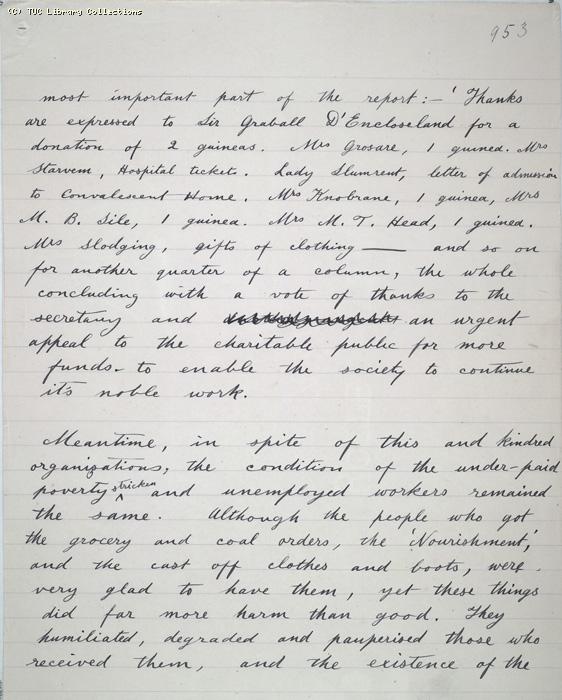 (C) TUC Library Collections
953
most important part of the report:- 'Thanks
are expressed to Sir Graball D'Encloseland for a
donation of 2 guineas. Mrs Grosare, 1 guinea. Mrs
Starvem, Hospital tickets. Lady Slumrent, letter of admission
to Convalescent Home. Mrs Knobrane, 1 guinea, Mrs
M. B. Sile, 1 guinea. Mrs M. T. Head, 1 guinea.
Mrs Slodging, gifts of clothing —— and so on
for another quarter of a column, the whole
concluding with a vote of thanks to the
secretary and an urgent
appeal to the charitable public for more
funds - to enable the society to continue
it's noble work.
Meantime, in spite of this and kindred
organizations, the condition of the under-paid
poverty stricken and unemployed workers remained
the same. Although the people who got
the grocery and coal orders, the 'Nourishment',
and the cast off clothes and boots, were
very glad to have them, yet these things
did far more harm than good. They
humiliated, degraded and pauperised those who
received them, and the existence of the